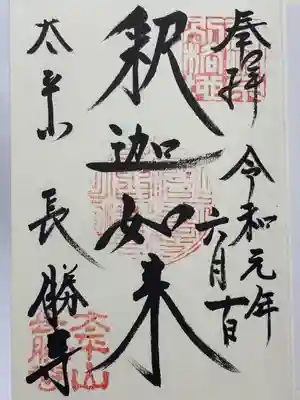 奉拜
令和元年
六月十日
釈迦如来
太平山
長勝寺